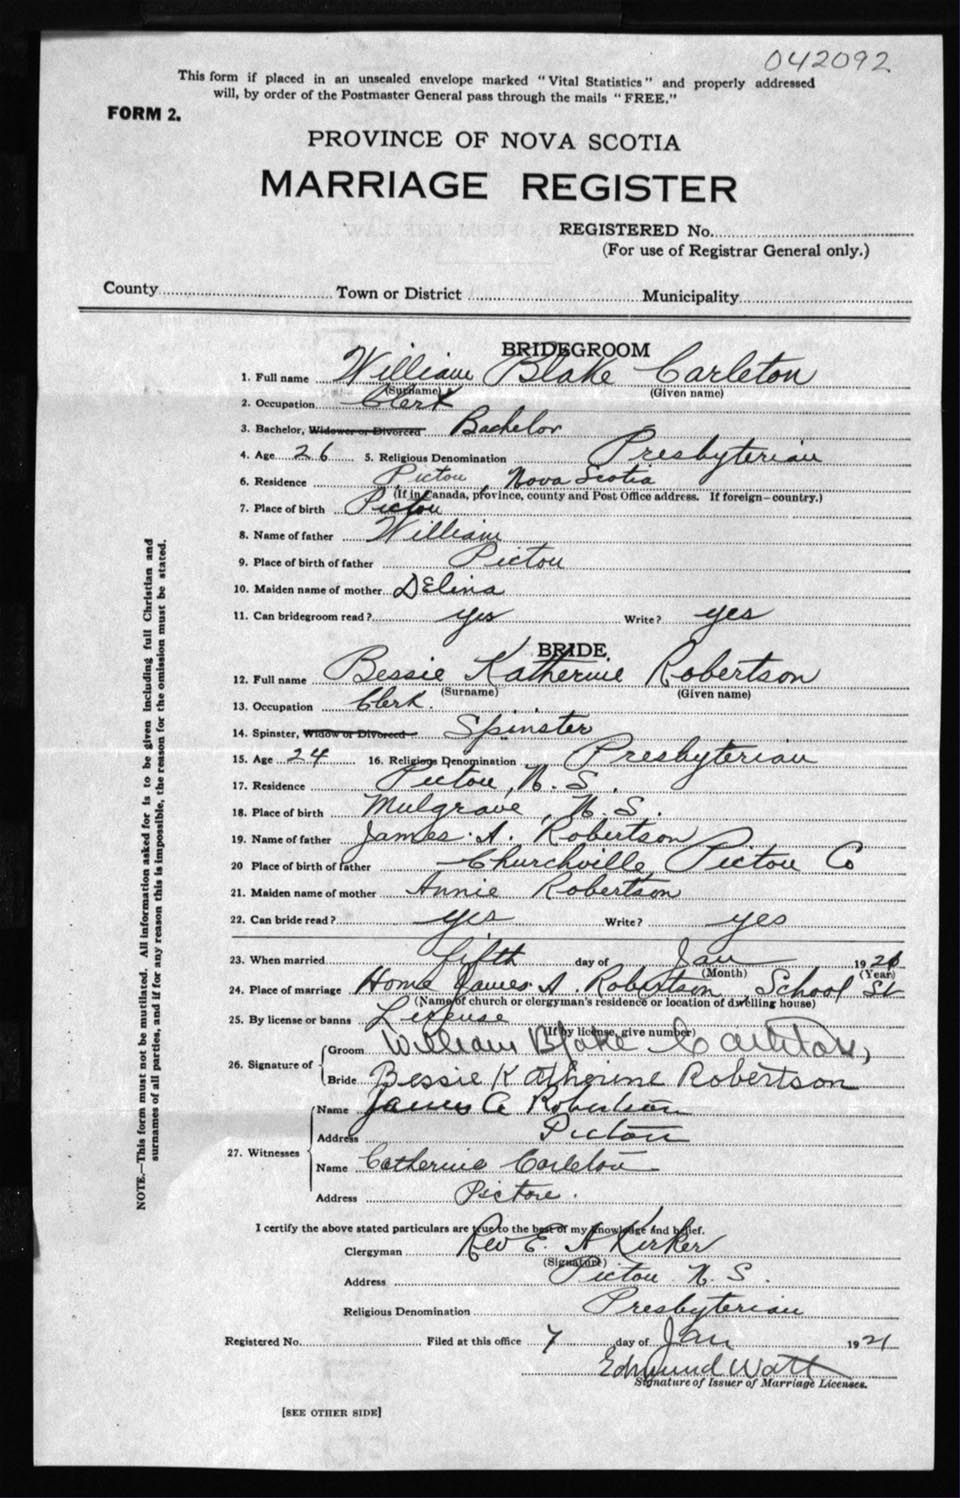 042092
This form if placed in an unsealed envelope marked "Vital Statistics" and properly addressed
will, by order of the Postmaster General pass through the mails "FREE."
FORM 2.
PROVINCE OF NOVA SCOTIA
MARRIAGE REGISTER
REGISTERED No.
(For use of Registrar General only.)
County Town or District Municipality
BRIDEGROOM
1. Full name William Blake Carleton
(Surname) (Given name)
2. Occupation Clerk
3. Bachelor, Widower or Divorced Bachelor
4. Age 26 5. Religious Denomination Presbyterian
6. Residence Pictou, Nova Scotia
(If in Canada, province, county and Post Office address. If foreign—country.)
7. Place of birth Pictou
8. Name of father William
9. Place of birth of father Pictou
10. Maiden name of mother DElina
11. Can bridegroom read? yes Write? yes
BRIDE
12. Full name Bessie Katherine Robertson
(Surname) (Given name)
13. Occupation Clerk.
14. Spinster, Widow or Divorced Spinster
15. Age 24 16. Religious Denomination Presbyterian
17. Residence Pictou, N. S.
18. Place of birth Mulgrave, N. S.
19. Name of father James A. Robertson
20 Place of birth of father Churchville Pictou Co
21. Maiden name of mother Annie Robertson
22. Can bride read? yes Write? yes
23. When married fifth day of Jan 192
(Month) (Year)
24. Place of marriage Home James A. Robertson School St
(Name of church or clergyman's residence or location of dwelling house)
25. By license or banns License
(If by license, give number)
26. Signature of Groom William Blake Carleton
Bride Bessie Katherine Robertson
27. Witnesses Name James A Robertson
Address Pictou
Name Catherine Carleton
Address Pictou.
I certify the above stated particulars are true to the best of my knowledge and belief.
Clergyman Rev E. A Kirker
(Signature)
Address Pictou N. S.
Religious Denomination Presbyterian
Registered No. Filed at this office 7 day of Jan 1921
Edmund Watt
Signature of Issuer of Marriage Licenses.
[SEE OTHER SIDE]
NOTE.—This form must not be mutilated. All information asked for is to be given including full Christian and
surnames of all parties, and if for any reason this is impossible, the reason for the omission must be stated.